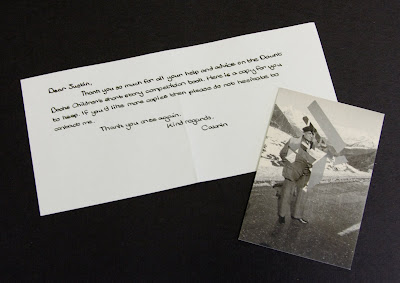 Dear Justin,
Thank you so much for all your help and advice on the Daunt
Books Children's short story competition book. Here is a copy for you
to keep. If you'd like more copies then please do not hesitate to
contact me.
Thank you once again.
Kind regards,